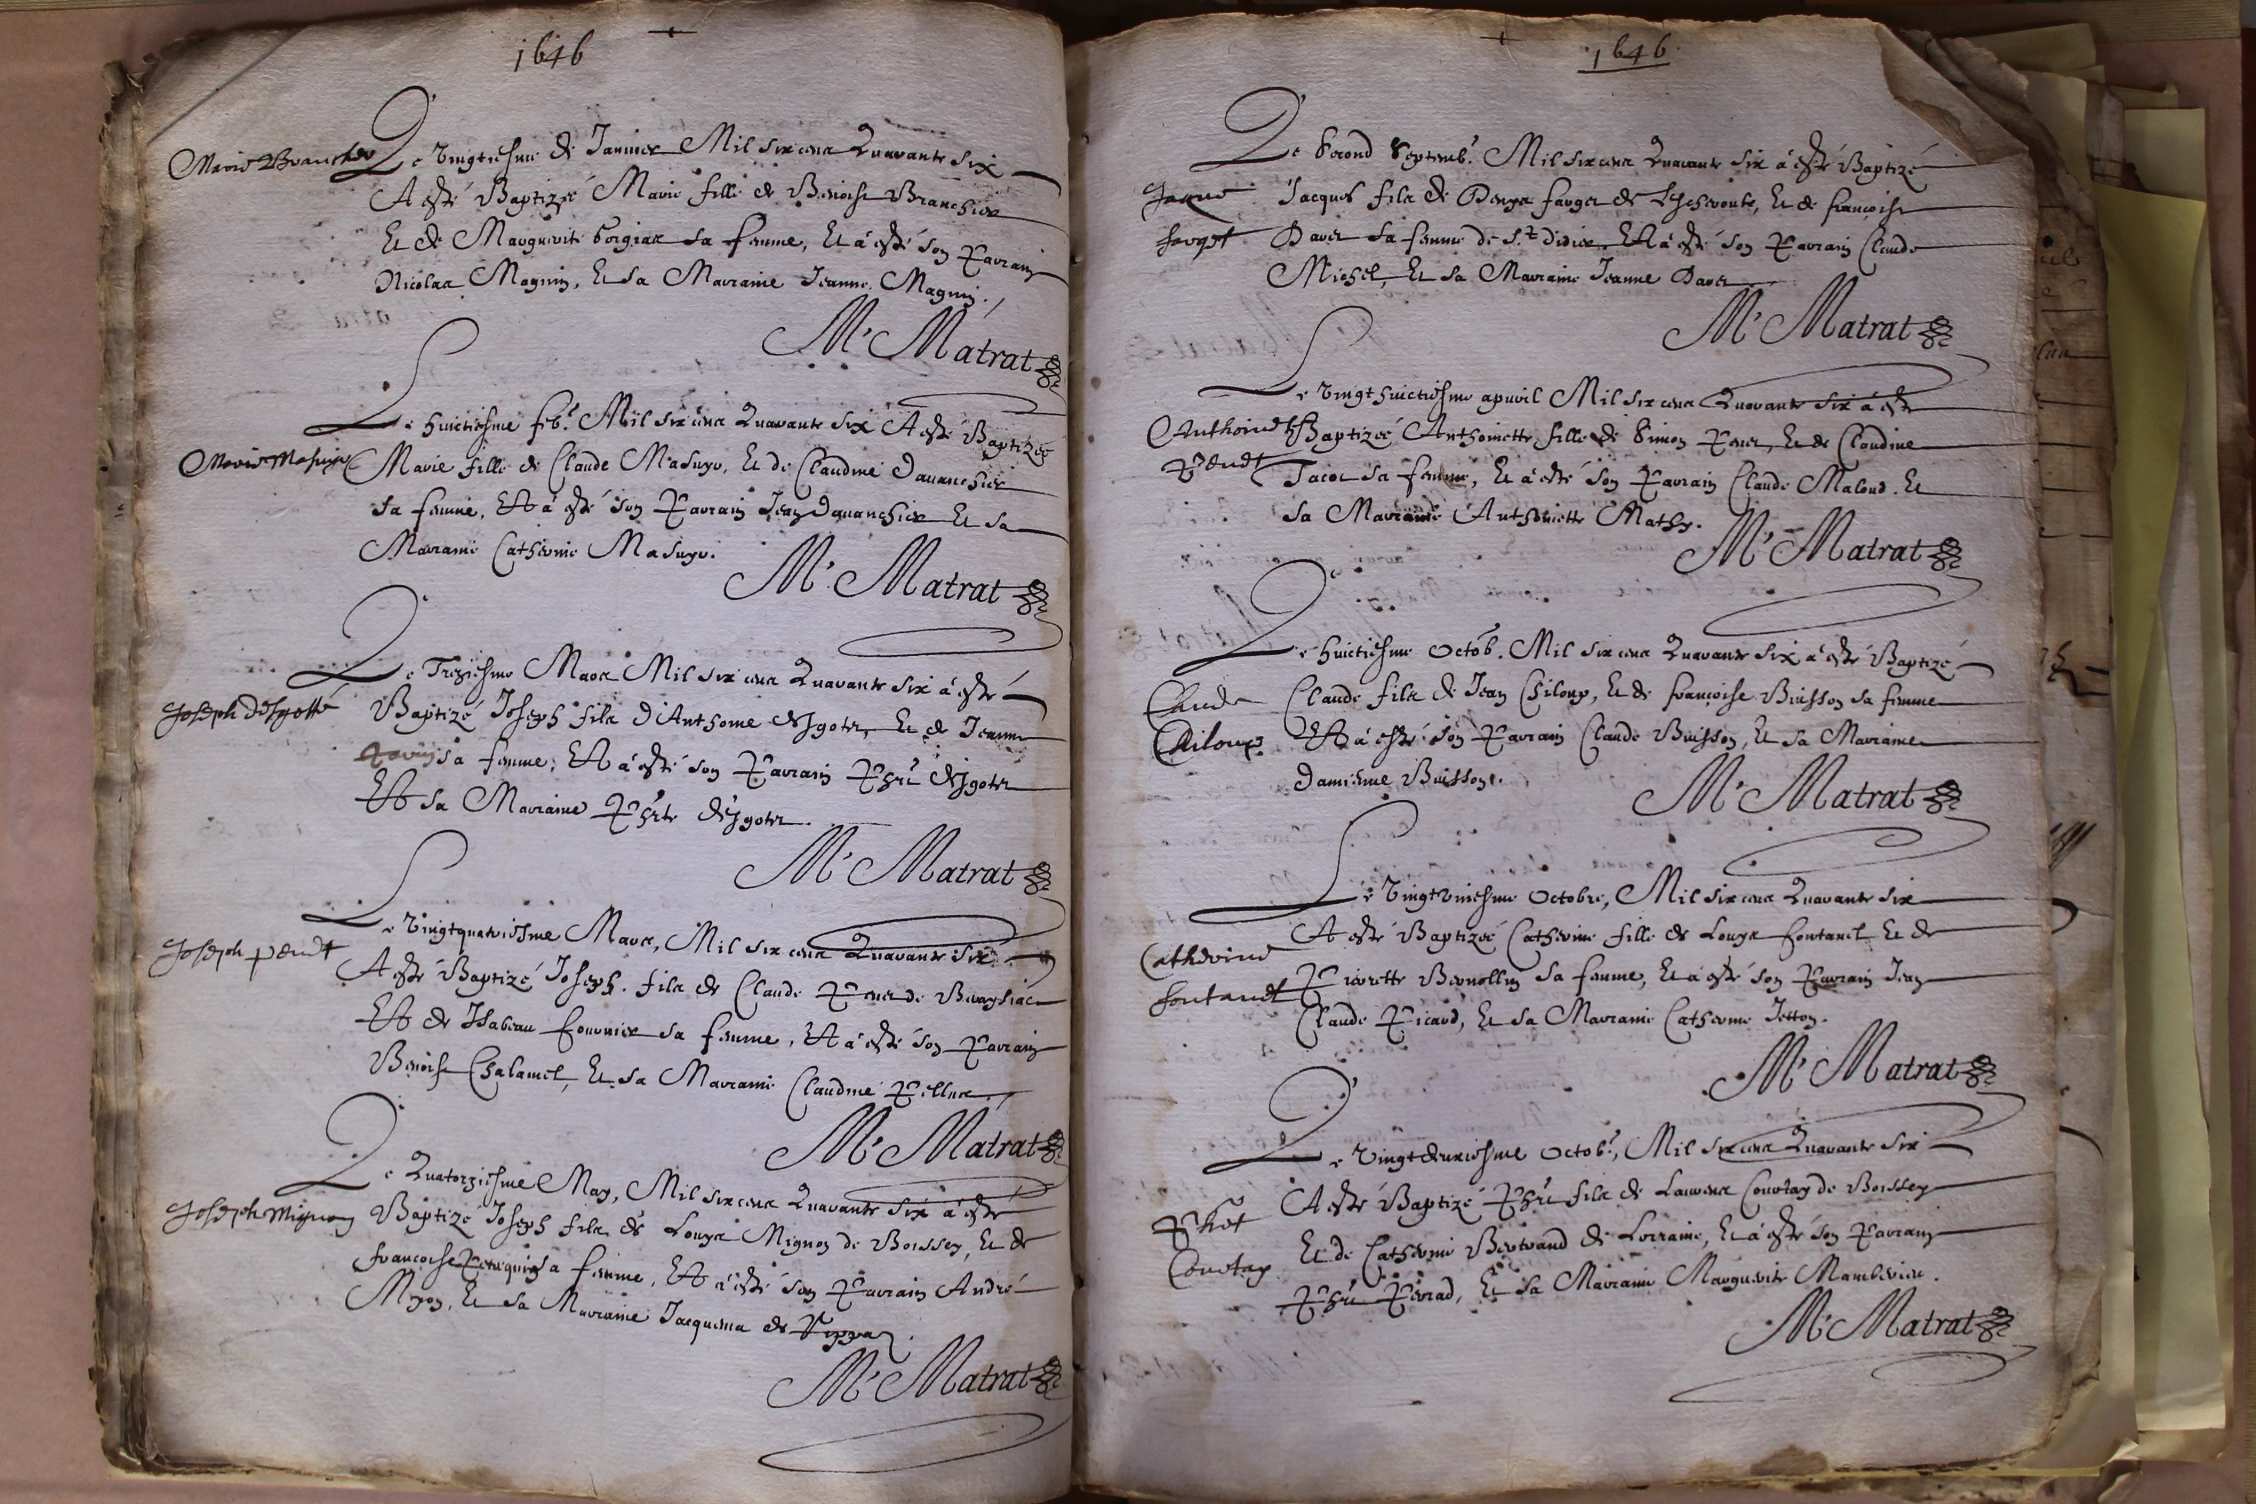 1646
Marie Branchier
Le Vingtiesme de Janvier Mil six cens Quarante six
A esté Baptizeé Marie fille de Benoist Branchier
Et de Marguerite sa femme, Et à esté son Parrain
Nicolas Magnin, Et sa Marraine Jeanne Magnin.
M. Matrat
Marie Masuyer
Le huictiesme feb. Mil six cens Quarante six A esté Baptizeé
Marie fille de Claude Masuyer, Et de Claudine Davanchier
sa femme, Et à esté son Parrain Jean Davanchier Et sa
Marraine Catherine Masuyer.
M. Matrat
Joseph desgotte
Le Treziesme Mars Mil six cens Quarante six à esté
Baptizé Joseph fils d'Anthoine desgotes, Et de Jeanne
sa femme, Et à esté son Parrain Phe desgotes
Et sa Marraine Phete desgotes.
M. Matrat
Joseph penet
Le Vingtquatriesme Mars, Mil six cens Quarante six
A esté Baptizé Joseph fils de Claude Penet de
Et de Isabeau fournier sa femme, Et à esté son Parrain
Benoist Chalamel, Et sa Marraine Claudine
M. Matrat
Joseph Mignon
Le Quatorziesme May, Mil six cens Quarante six à esté
Baptizé Joseph fils de Louys Mignon de Boissey, Et de
francoise sa femme, Et à esté son Parrain André
Et sa Marraine Jacquema de
M. Matrat
1646
Jaque
farget
Le Second Septemb. Mil six cens Quarante six à esté Baptizé
Jacques fils de Denys farget de Et de francoise
Davet sa femme de St didier, Et à esté son Parrain Claude
Michel, Et sa Marraine Jeanne Davet
M. Matrat
Anthoinette
Penet
Le Vingthuictiesme apvril Mil six cens Quarante six à esté
Baptizeé Anthoinette fille de Simon Penet, Et de Claudine
sa femme, Et à esté son Parrain Claude Et
sa Marraine Anthoinette Mathy.
M. Matrat
Claude
Chiloup
Le huictiesme octob. Mil six cens Quarante six à esté Baptizé
Claude fils de Jean Chiloup, Et de francoise Buisson sa femme
Et à esté son Parrain Claude Buisson, Et sa Marraine
damienne Buisson.
M. Matrat
Catherine
fontanel
Le Vingtuniesme octobre, Mil six cens Quarante six
A esté Baptizeé Catherine fille de Louys fontanel Et de
Pierrette Bernollin sa femme, Et à esté son Parrain Jean
Claude Picard, Et sa Marraine Catherine Jetton.
M. Matrat
Phet
Courtay
Le Vingtdeuxiesme octob. Mil six cens Quarante six
A esté Baptizé Phe fils de Laurens Courtay de Boissey
Et de Catherine Bertrand de Lorraine, Et à esté son Parrain
Phe Perrad, Et sa Marraine Marguerite
M. Matrat